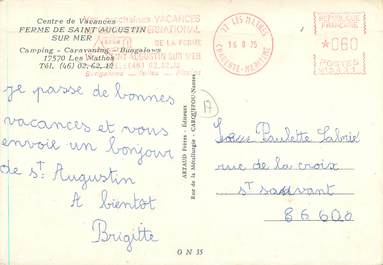 Centre de Vacances
FERME DE SAINT AUGUSTIN
SUR MER
Camping - Caravaning - Bungalows
17570 Les Mathes
Tél. (46) 02.62.12
VACANCES
INTERNATIONAL
DE LA FERME
ST AUGUSTIN SUR MER
TEL: (46) 02.62.12
Bungalows
17 LES MATHES
16 8 75
CHARENTE-MARITIME
REPUBLIQUE
FRANÇAISE
*060
POSTES
je passe de bonnes
vacances et vous
envoie un bonjour
de St. Augustin
A bientot
Brigitte
ARTAUD Frères - Editeurs
Rue de la Métallurgie - CARQUEFOU-Nantes
17
Paulette
rue de la croix
St sauvant
86600
O N 35